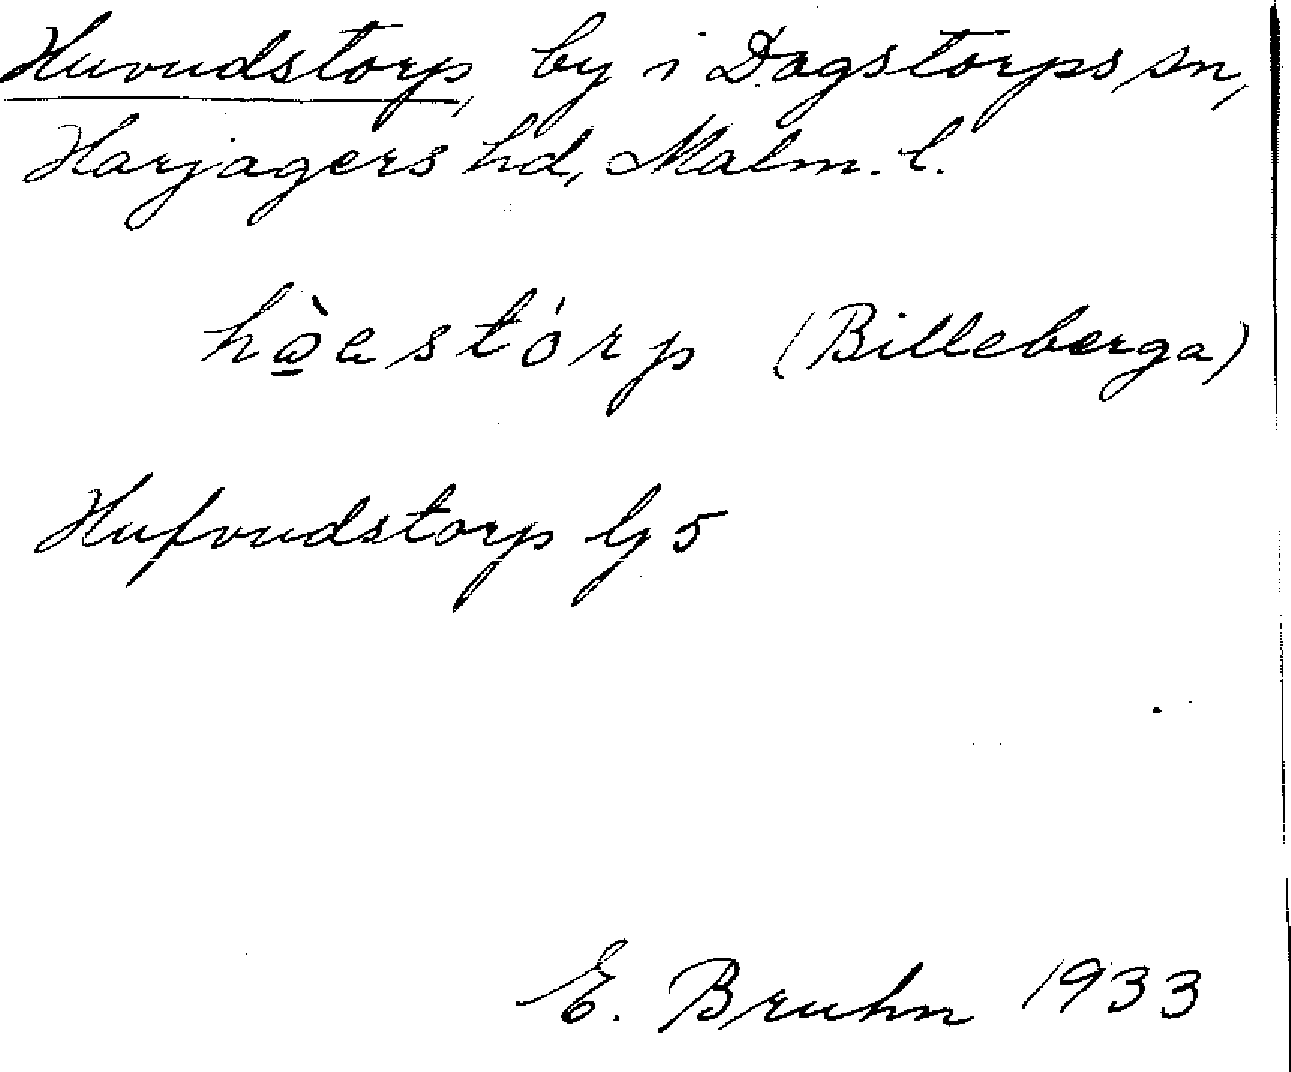 Huvudstorp, by i Dagstorps sn,
Harjagers hd, Malm. l.
(Billeberga)
Hufvudstorp Gj 5
E. Bruhn 1933